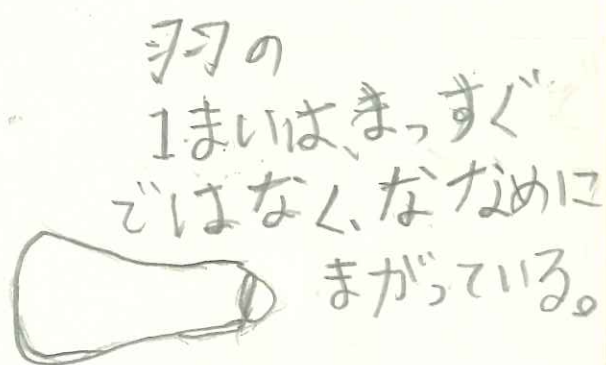 羽の
1まいは、まっすぐ
ではなく、ななめに
まがっている。